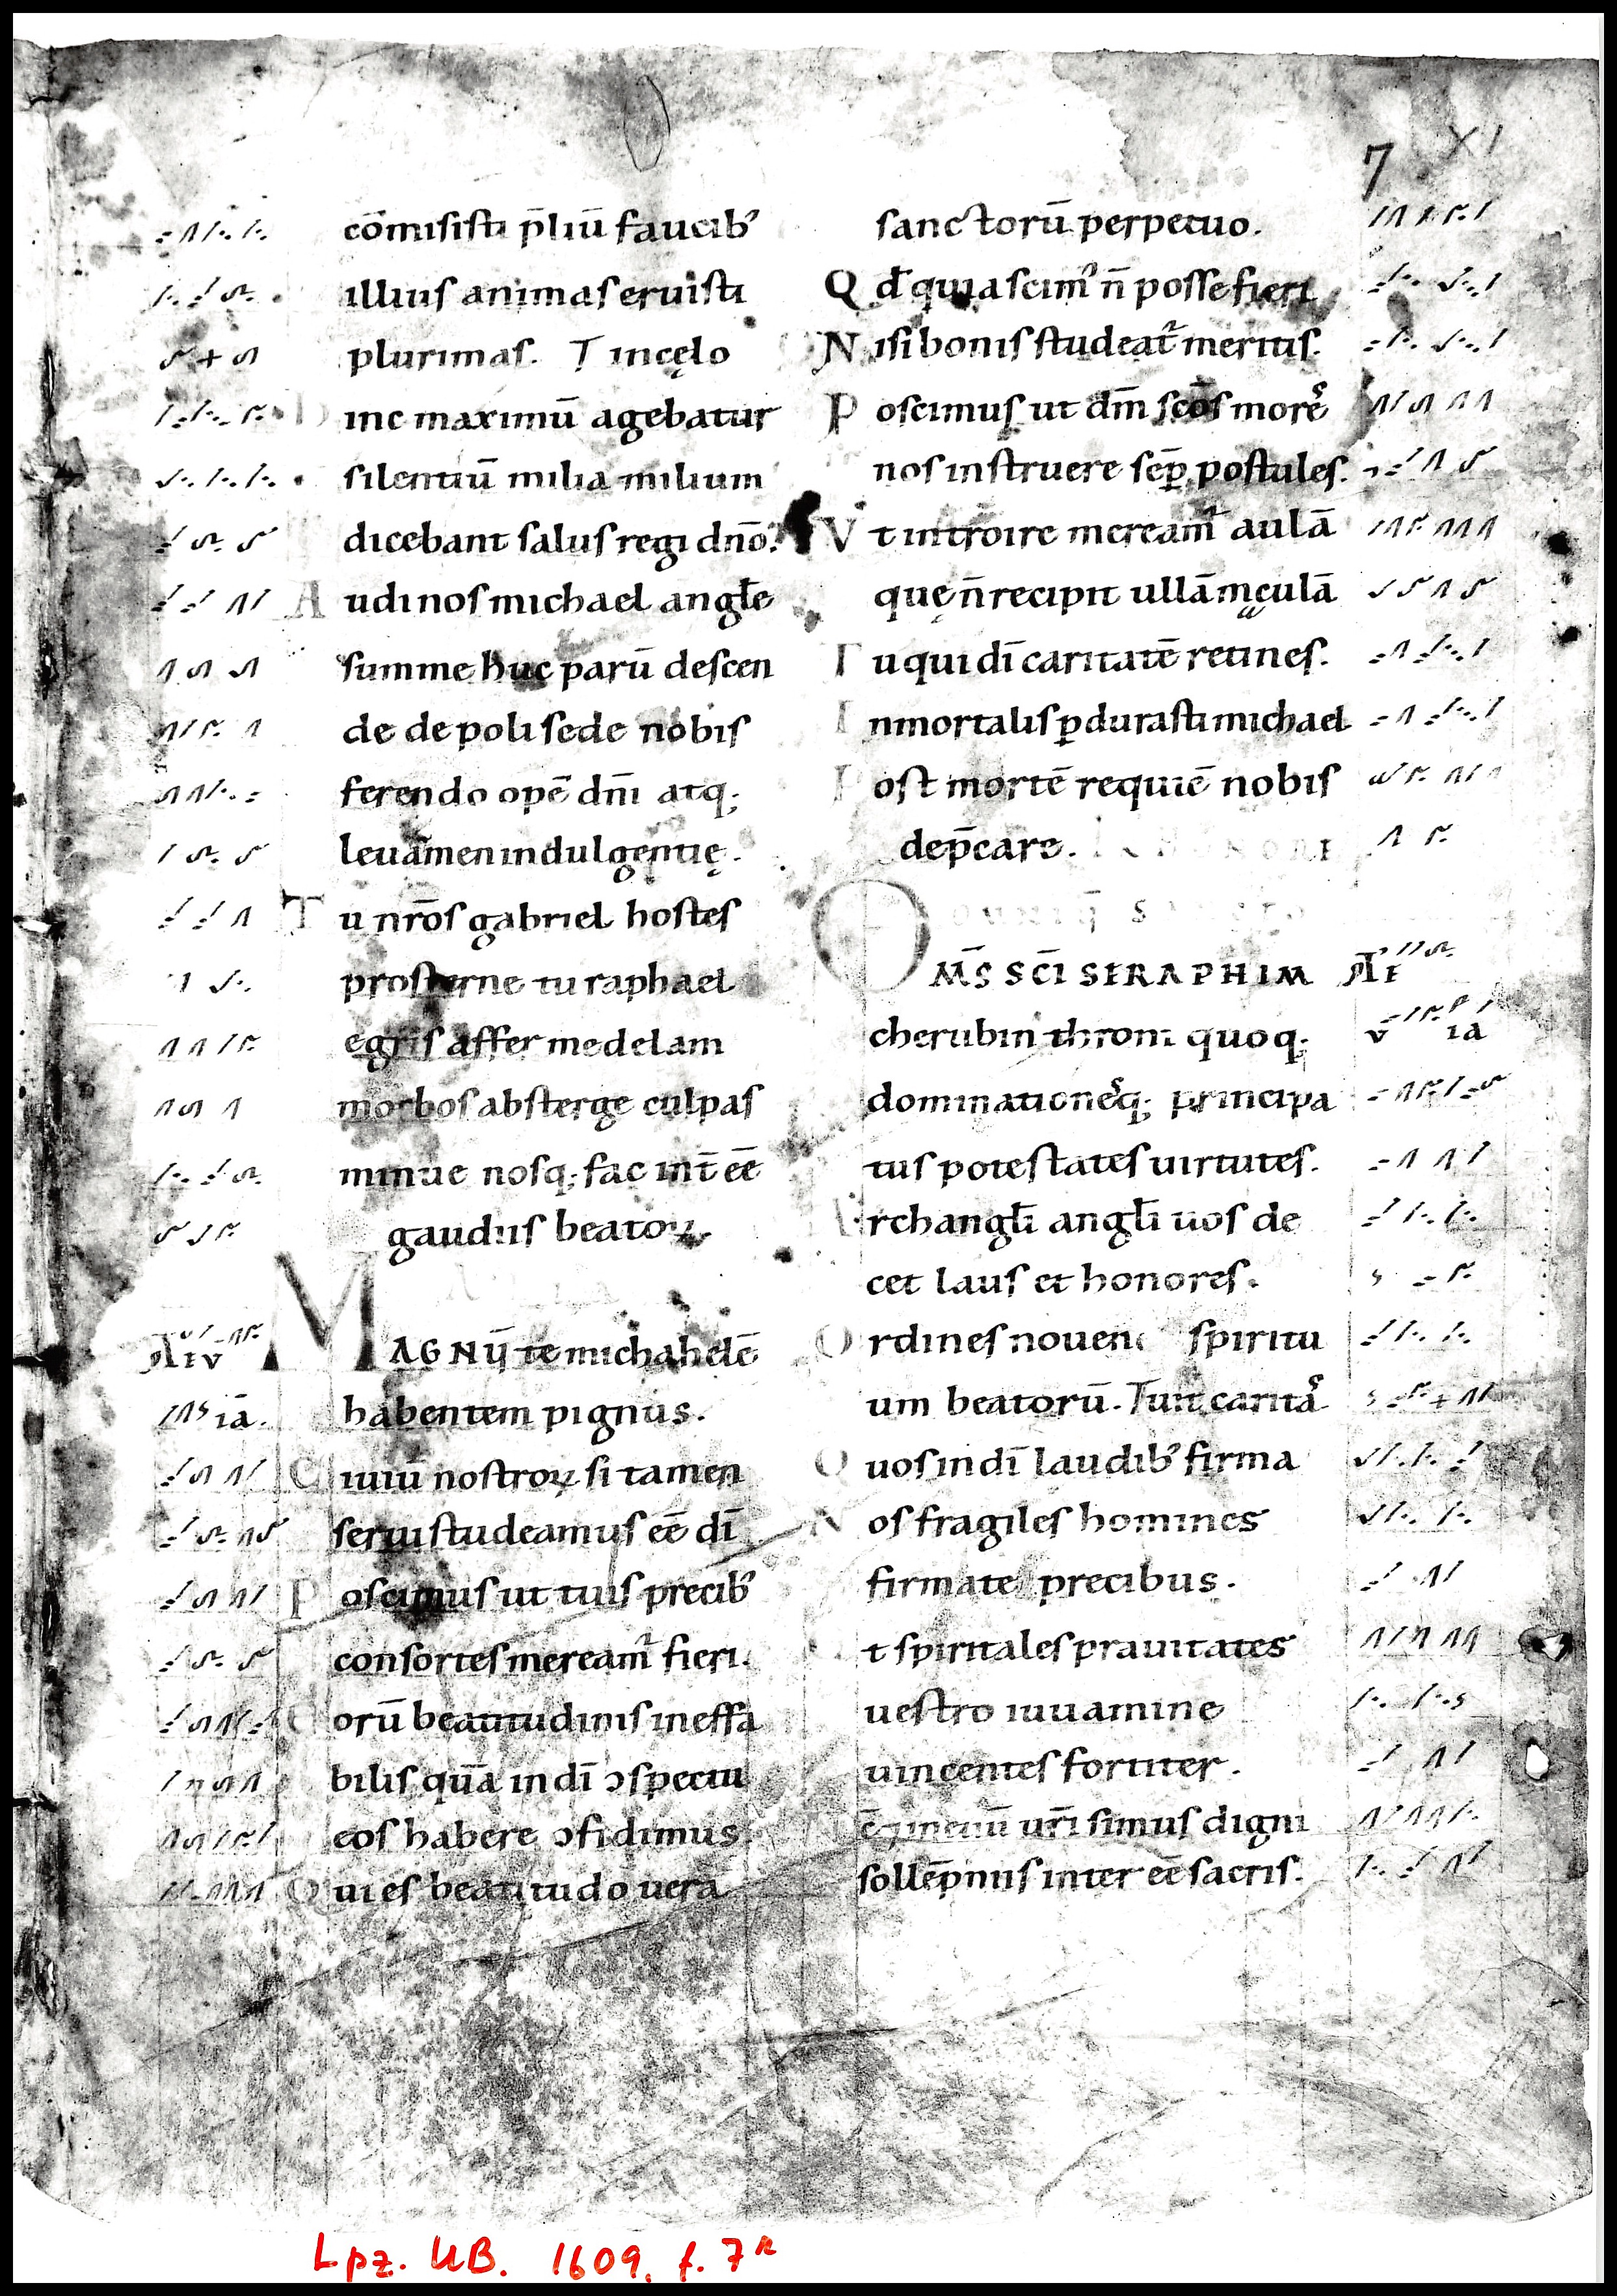 7 XI
cōmisisti p̄liū faucib᾽
illius animas eruisti
plurimas. T incęlo
inc maximū agebatur
silentiū milia milium
dicebant salus regi dn̄o.
A udi nos michael angłe
summe huc parū descen
de de poli sede nobis
ferendo opē dn̄i atq;
leuam̄en indulgentię.
T u nr̄os gabriel hostes
prosterne tu raphael
egris affer medelam
morbos absterge culpas
minue nosq; fac int̄ eē
gaudiis beatoꝝ.
AEV
M AGNŪ te michahelē
habentem pignus.
ia.
C iuiū nostroꝝ si tamen
serui studeamus eē dī
P oscimus ut tuis precib᾽
consortes meream᾽ fieri.
orū beatitudinis ineffa
bilis quā in dī ɔspectu
eos habere ɔfidimus.
Q ui es beatitudo uera
sanctorū perpetuo.
Q đ quia scim᾽ n̄ posse fieri
N isi bonis studeat᾽ meritis.
P oscimus ut dm̄ scōs morēs
nos instruere sēꝑ postules.
V t introire meream᾽ aulā
quę n̄ recipit ullā maculā
T u qui dī caritatē retines.
I nmortalis ꝑdurasti michael
P ost mortē requiē nobis
dep̄care.
O MS̄ SC̄I SERAPHIM AE
cherubin throni quoq;
v ia
dominationesq; principa
tus potestates uirtutes.
A rchangłi angłi uos de
cet laus et honores.
O rdines noueni spiritu
um beatorū. T uit caritas
Q uos in dī laudib᾽ firma
N os fragiles homines
firmate precibus.
t spiritales prauitates
uestro iuuamine
uincentes fortiter.
ur̄i simus digni
sollēpniis inter eē sacris.
Lpz. UB. 1609, f. 7r